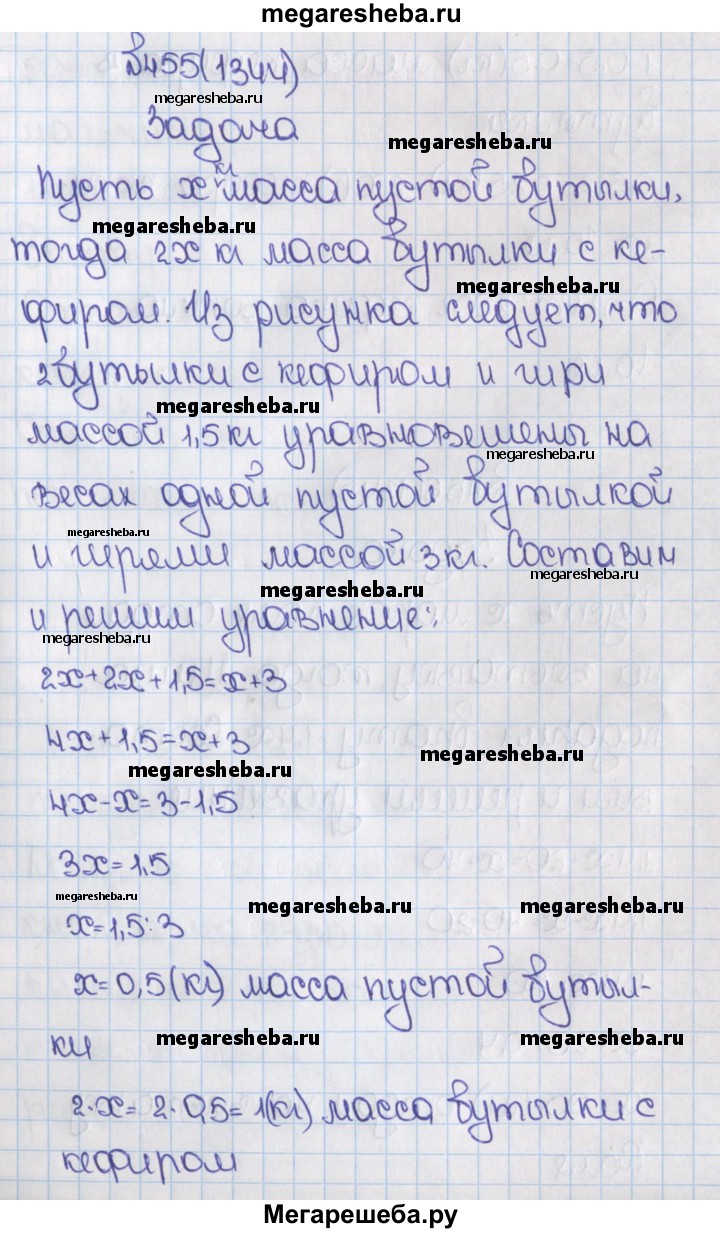 megaresheba.ru
№455(1344)
megaresheba.ru
Задача
megaresheba.ru
Пусть x кг масса пустой бутылки,
megaresheba.ru
тогда 2x кг масса бутылки с ке-
megaresheba.ru
фиром. Из рисунка следует, что
2 бутылки с кефиром и гири
megaresheba.ru
массой 1,5 кг уравновешены на
megaresheba.ru
весах одной пустой бутылкой
megaresheba.ru
и гирями массой 3 кг. Составим
megaresheba.ru
megaresheba.ru
и решим уравнение:
megaresheba.ru
2x+2x+1,5=x+3
4x+1,5=x+3
megaresheba.ru
megaresheba.ru
4x-x=3-1,5
3x=1,5
megaresheba.ru
megaresheba.ru
megaresheba.ru
x=1,5:3
x=0,5(кг) масса пустой бутыл-
ки
megaresheba.ru
megaresheba.ru
2·x=2·0,5=1(кг) масса бутылки с
кефиром
Мегарешеба.ру